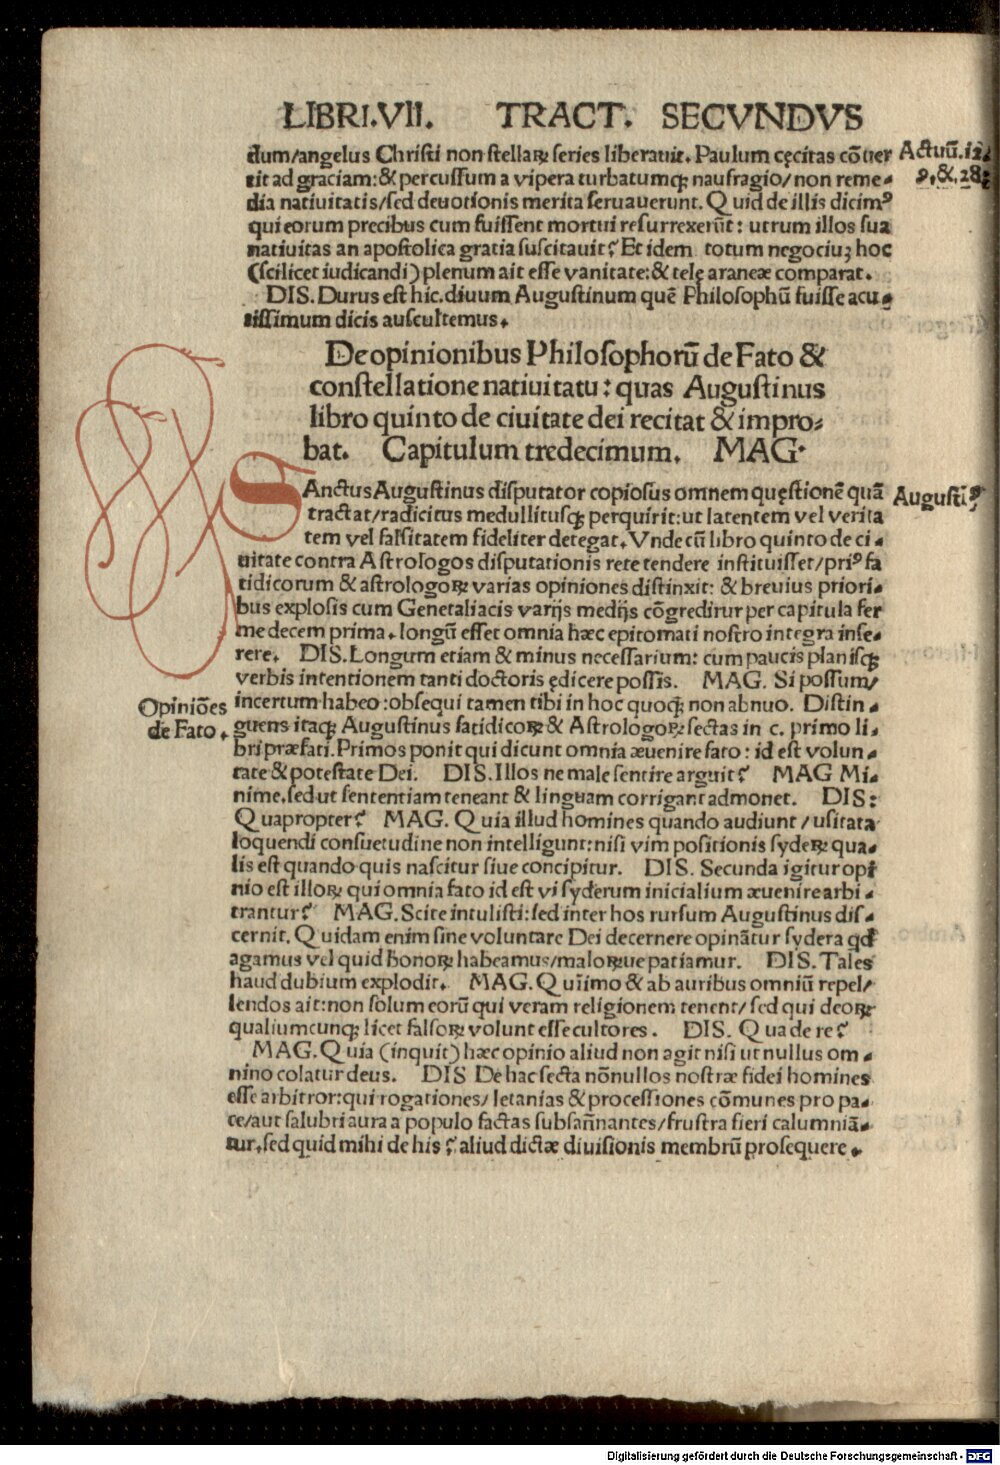 LIBRI.VII. TRACT. SECVNDVS
dum/angelus Christi non stellaꝝ series liberauit. Paulum cęcitas cōuer
tit ad graciam: & percussum a vipera turbatumqꝫ naufragio/non reme-
dia natiuitatis/sed deuotionis merita seruauerunt. Quid de illis dicimꝰ
qui eorum precibus cum fuissent mortui resurrexerūt: utrum illos sua
natiuitas an apostolica gratia suscitauit? Et idem totum negociuꝫ hoc
(scilicet iudicandi) plenum ait esse vanitate: & telę araneæ comparat.
DIS. Durus est hic. diuum Augustinum quē Philosophū fuisse acu-
tissimum dicis auscultemus.
Actuū.12.
9. & .28.
De opinionibus Philosophorū de Fato &
constellatione natiuitatu: quas Augustinus
libro quinto de ciuitate dei recitat & impro-
bat. Capitulum tredecimum. MAG.
SAnctus Augustinus disputator copiosus omnem quęstionē quā
tractat/radicitus medullitusqꝫ perquirit: ut latentem vel verita
tem vel falsitatem fideliter detegat. Vnde cū libro quinto de ci-
uitate contra Astrologos disputationis rete tendere instituisset/priꝰ fa
tidicorum & astrologoꝝ varias opiniones distinxit: & breuius priori-
bus explosis cum Genetaliacis varijs medijs cōgreditur per capitula fer
me decem prima. longū esset omnia hæc epitomati nostro integra inse-
rere. DIS. Longum etiam & minus necessarium: cum paucis planisqꝫ
verbis intentionem tanti doctoris ędicere possis. MAG. Si possum/
incertum habeo: obsequi tamen tibi in hoc quoqꝫ non abnuo. Distin-
guens itaqꝫ Augustinus fatidicoꝝ & Astrologoꝝ sectas in c. primo li-
bri præfati. Primos ponit qui dicunt omnia æuenire fato: id est volun-
tate & potestate Dei. DIS. Illos ne male sentire arguit? MAG Mi-
nime. sed ut sententiam teneant & linguam corrigant admonet. DIS:
Quapropter? MAG. Quia illud homines quando audiunt/usitata
loquendi consuetudine non intelligunt: nisi vim positionis sydeꝝ qua-
lis est quando quis nascitur siue concipitur. DIS. Secunda igitur opi
nio est illoꝝ qui omnia fato id est vi syderum inicialium æuenire arbi-
trantur? MAG. Scite intulisti: sed inter hos rursum Augustinus dis-
cernit. Quidam enim sine voluntate Dei decernere opinātur sydera qd
agamus vel quid bonoꝝ habeamus/maloꝝue patiamur. DIS. Tales
haud dubium explodit. MAG. Quīimo & ab auribus omniū repel/
lendos ait: non solum eorū qui veram religionem tenent/sed qui deoꝝ
qualiumcunqꝫ licet falsoꝝ volunt esse cultores. DIS. Qua de re?
MAG. Quia (inquit) hæc opinio aliud non agit nisi ut nullus om-
nino colatur deus. DIS De hac secta nōnullos nostræ fidei homines
esse arbitror: qui rogationes/letanias & processiones cōmunes pro pa-
ce/aut salubri aura a populo factas subsān̄antes/frustra fieri calumniā-
tur. sed quid mihi de his? aliud dictæ diuisionis membrū prosequere.
Augustiꝰ
Opiniōes
de Fato.
Digitalisierung gefördert durch die Deutsche Forschungsgemeinschaft - DFG